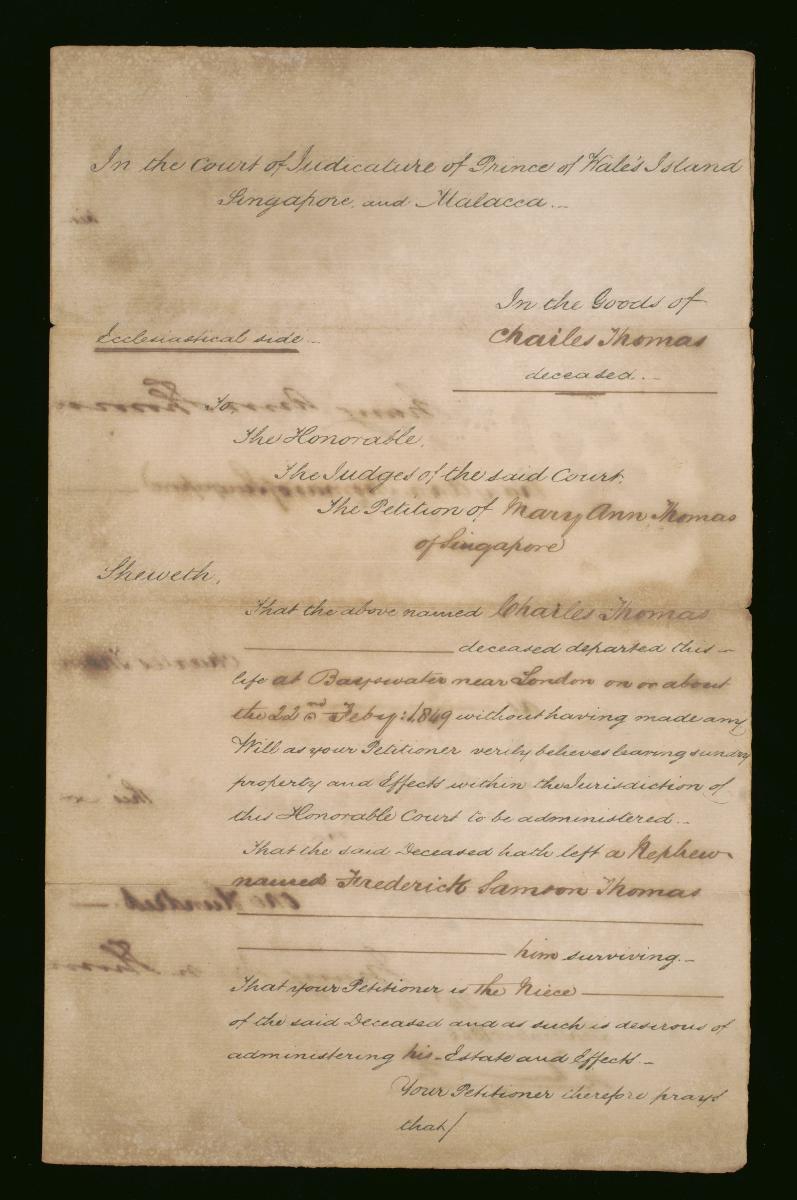 In the Court of Judicature of Prince of Wale's Island
Singapore, and Malacca
In the Goods of
Ecclesiastical side
Charles Thomas
deceased.
To
The Honorable,
The Judges of the said Court.
The Petition of Mary Ann Thomas
of Singapore
Sheweth,
That the above named Charles Thomas
deceased departed this
life at Bayswater near London on or about
the 22nd Feby: 1849 without having made any
Will as your Petitioner verily believes leaving sundry
property and Effects within the Jurisdiction of
this Honorable Court to be administered
That the said Deceased hath left a Nephew
named Frederick Samson Thomas
him surviving.
That your Petitioner is the Niece
of the said Deceased and as such is desirous of
administering his Estate and Effects
Your Petitioner therefore prays
that/